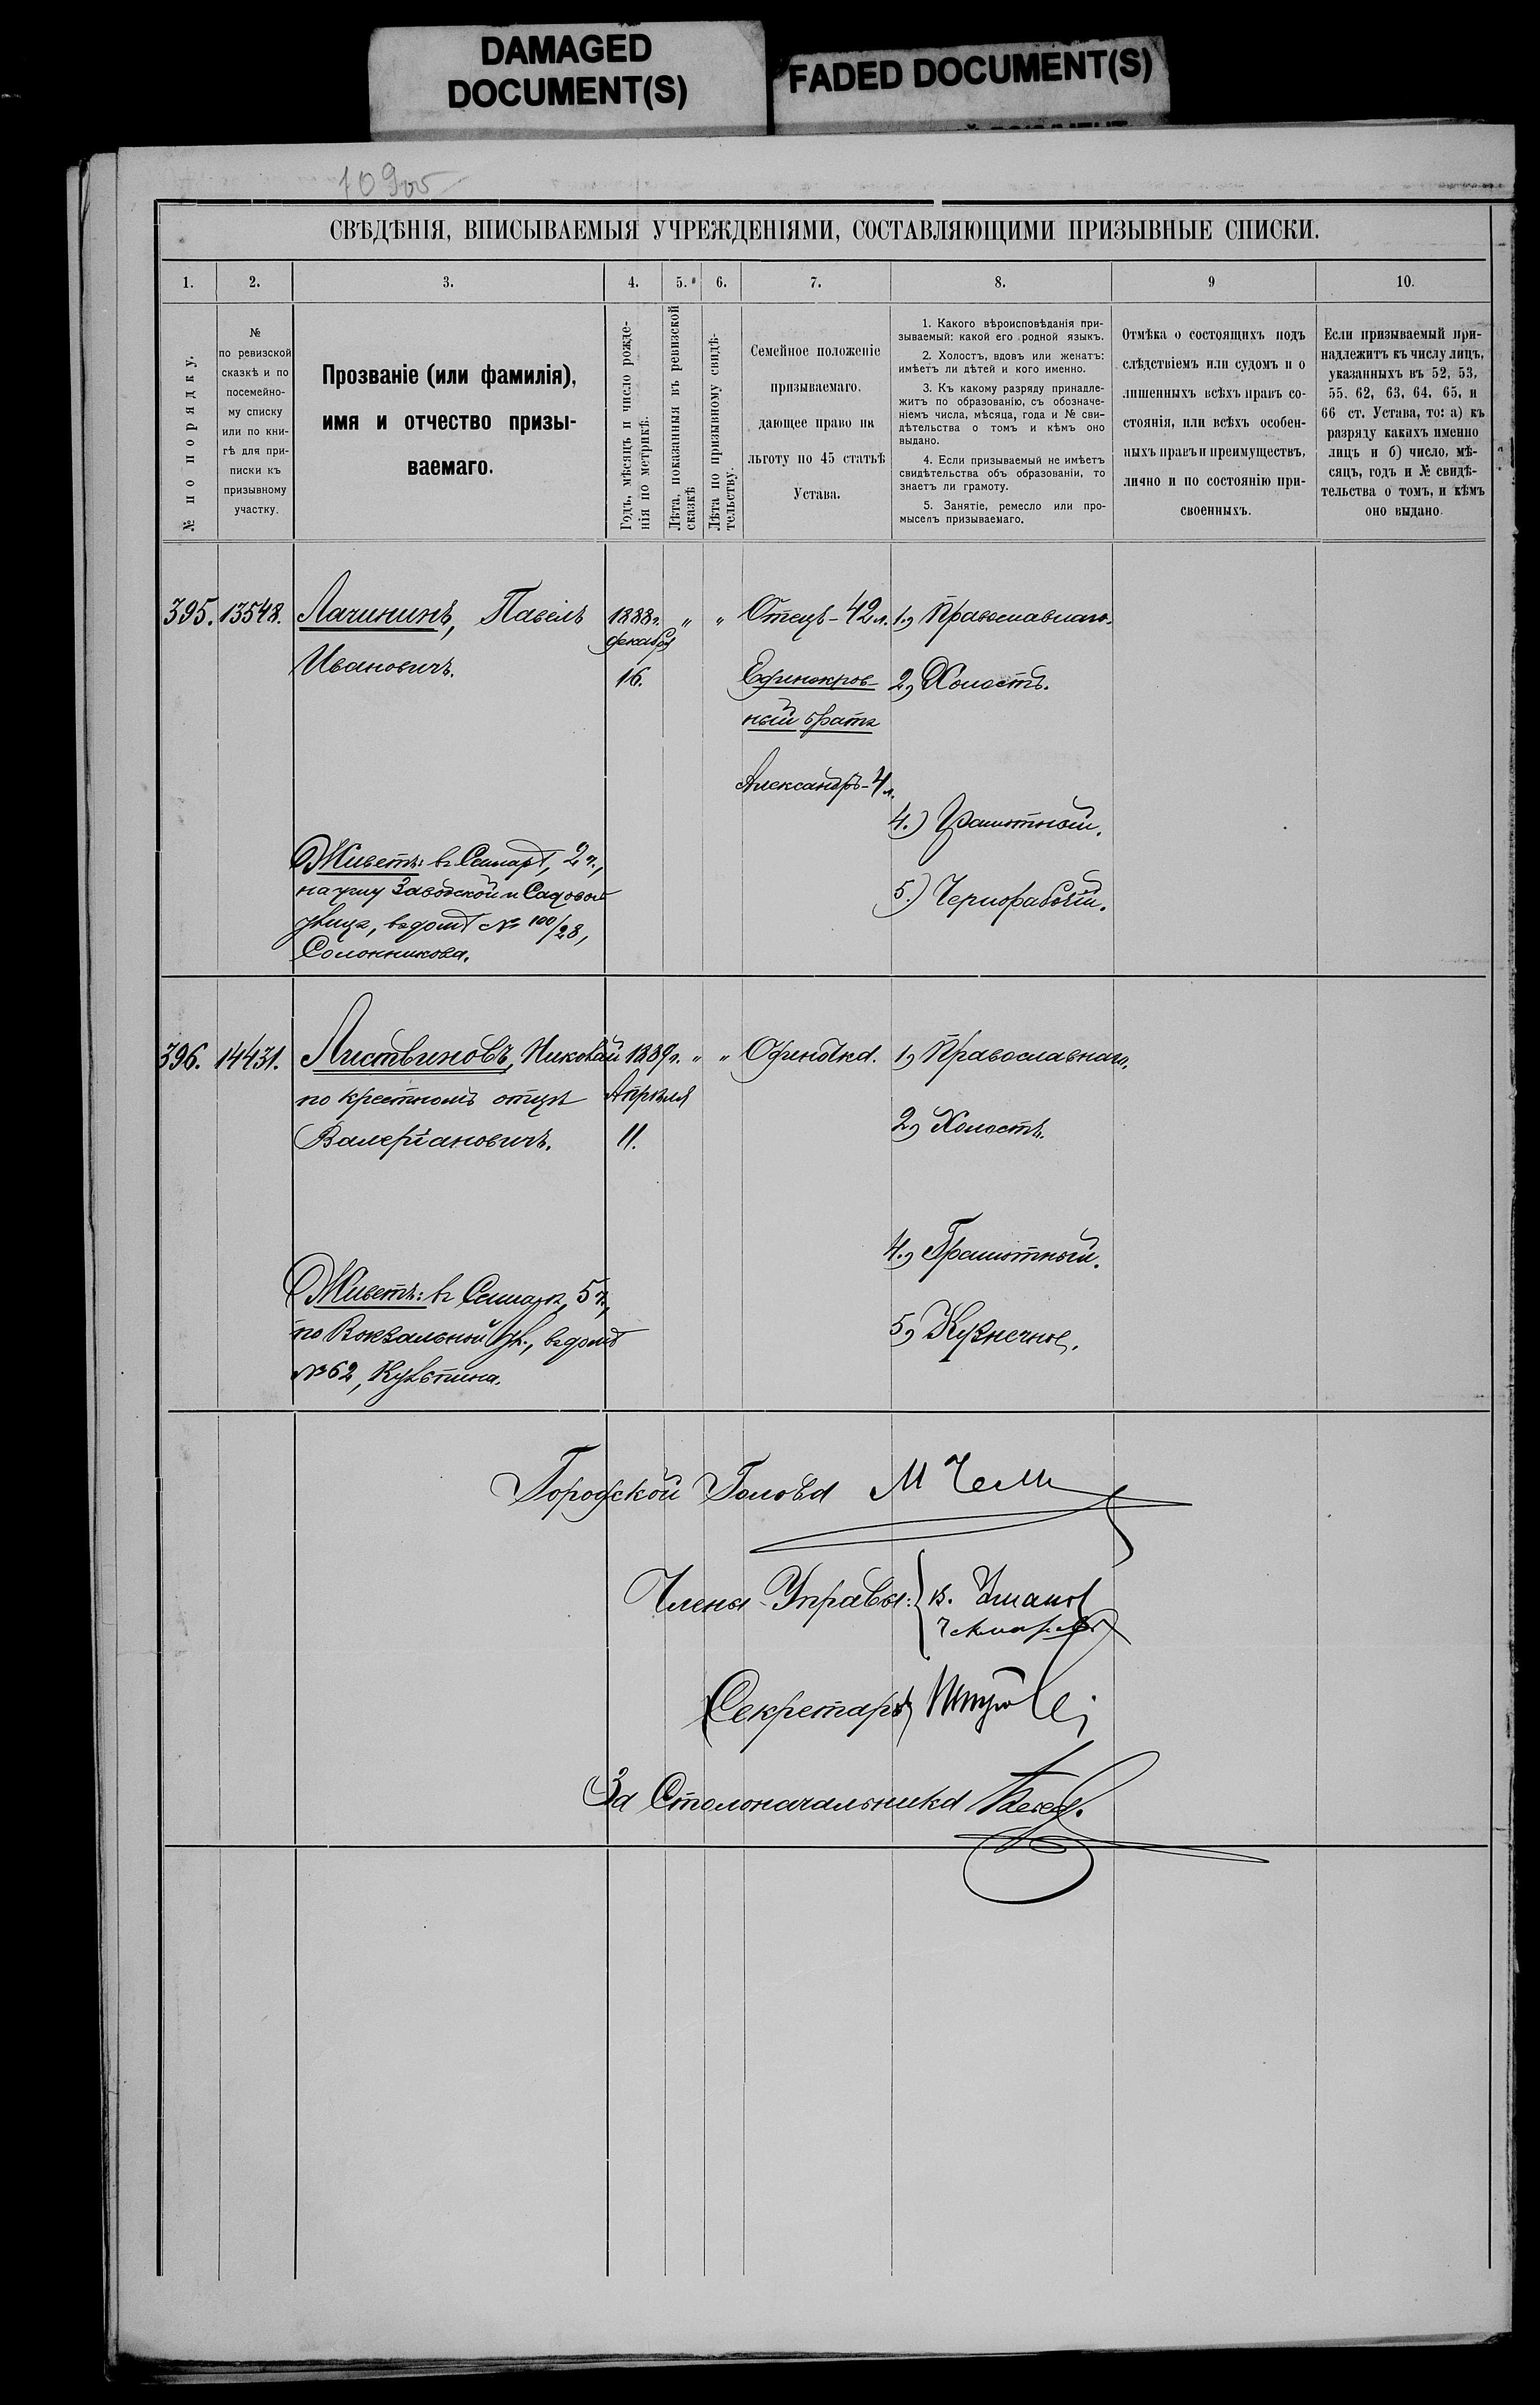 DAMAGED
DOCUMENT(S)
FADED DOCUMENT(S)
СВѢДѢНІЯ, ВПИСЫВАЕМЫЯ УЧРЕЖДЕНІЯМИ, СОСТАВЛЯЮЩИМИ ПРИЗЫВНЫЕ СПИСКИ.
1. 2. 3. 4. 5. 6. 7. 8. 9 10.
№ по порядку.
№
по ревизской
сказкѣ и по
посемейно-
му списку
или по кни-
гѣ для при-
писки къ
призывному
участку.
Прозваніе (или фамилія),
имя и отчество призы-
ваемаго.
Годъ, мѣсяцъ и число рожде-
нія по метрикѣ.
Лѣта, показанныя въ ревизской
сказкѣ
Лѣта по призывному свидѣ-
тельству.
Семейное положеніе
призываемаго,
дающее право на
льготу по 45 статьѣ
Устава.
1. Какого вѣроисповѣданія при-
зываемый: какой его родной языкъ.
2. Холостъ, вдовъ или женатъ:
имѣетъ ли дѣтей и кого именно.
3. Къ какому разряду принадле-
житъ по образованію, съ обозначе-
ніемъ числа, мѣсяца, года и № сви-
дѣтельства о томъ и кѣмъ оно
выдано.
4. Если призываемый не имѣетъ
свидѣтельства объ образованіи, то
знаетъ ли грамоту.
5. Занятіе, ремесло или про-
мыселъ призываемаго.
Отмѣка о состоящихъ подъ
слѣдствіемъ или судомъ и о
лишенныхъ всѣхъ правъ со-
стоянія, или всѣхъ особен-
ныхъ правъ и преимуществъ,
лично и по состоянію при-
своенныхъ.
Если призываемый при-
надлежитъ къ числу лицъ,
указанныхъ въ 52, 53,
55, 62, 63, 64, 65, и
66 ст. Устава, то: а) къ
разряду какихъ именно
лицъ и б) число, мѣ-
сяцъ, годъ и № свидѣ-
тельства о томъ, и кѣмъ
оно выдано.
395. 13548. Лачининъ, Павелъ 1888 г. " " Отецъ - 42 л. 1., Православнаго.
декабря
Ивановичъ. 16. Единокров- 2, Холостъ.
ный братъ
Александръ - 4 л.
4.) Грамотный.
Живетъ: въ Самарѣ, 2 ч.,
на углу Заводской и Садовой
улицъ, въ домѣ № 100/28,
Солонникова.
5.) Чернорабочій.
396. 14431. Листвиновъ, Николай 1889 г. " " Одиночка. 1, Православнаго,
по крестномъ отцѣ Апрѣля
Валеріановичъ. 11.
2, Холостъ.
4., Грамотный.
Живетъ: въ Самарѣ, 5 ч.,
по Вокзальной ул., въ домѣ
№ 62,
5, Кузнечное.
Городской Голова М Чел
Члены Управы:
Секретарь
За Столоначальника